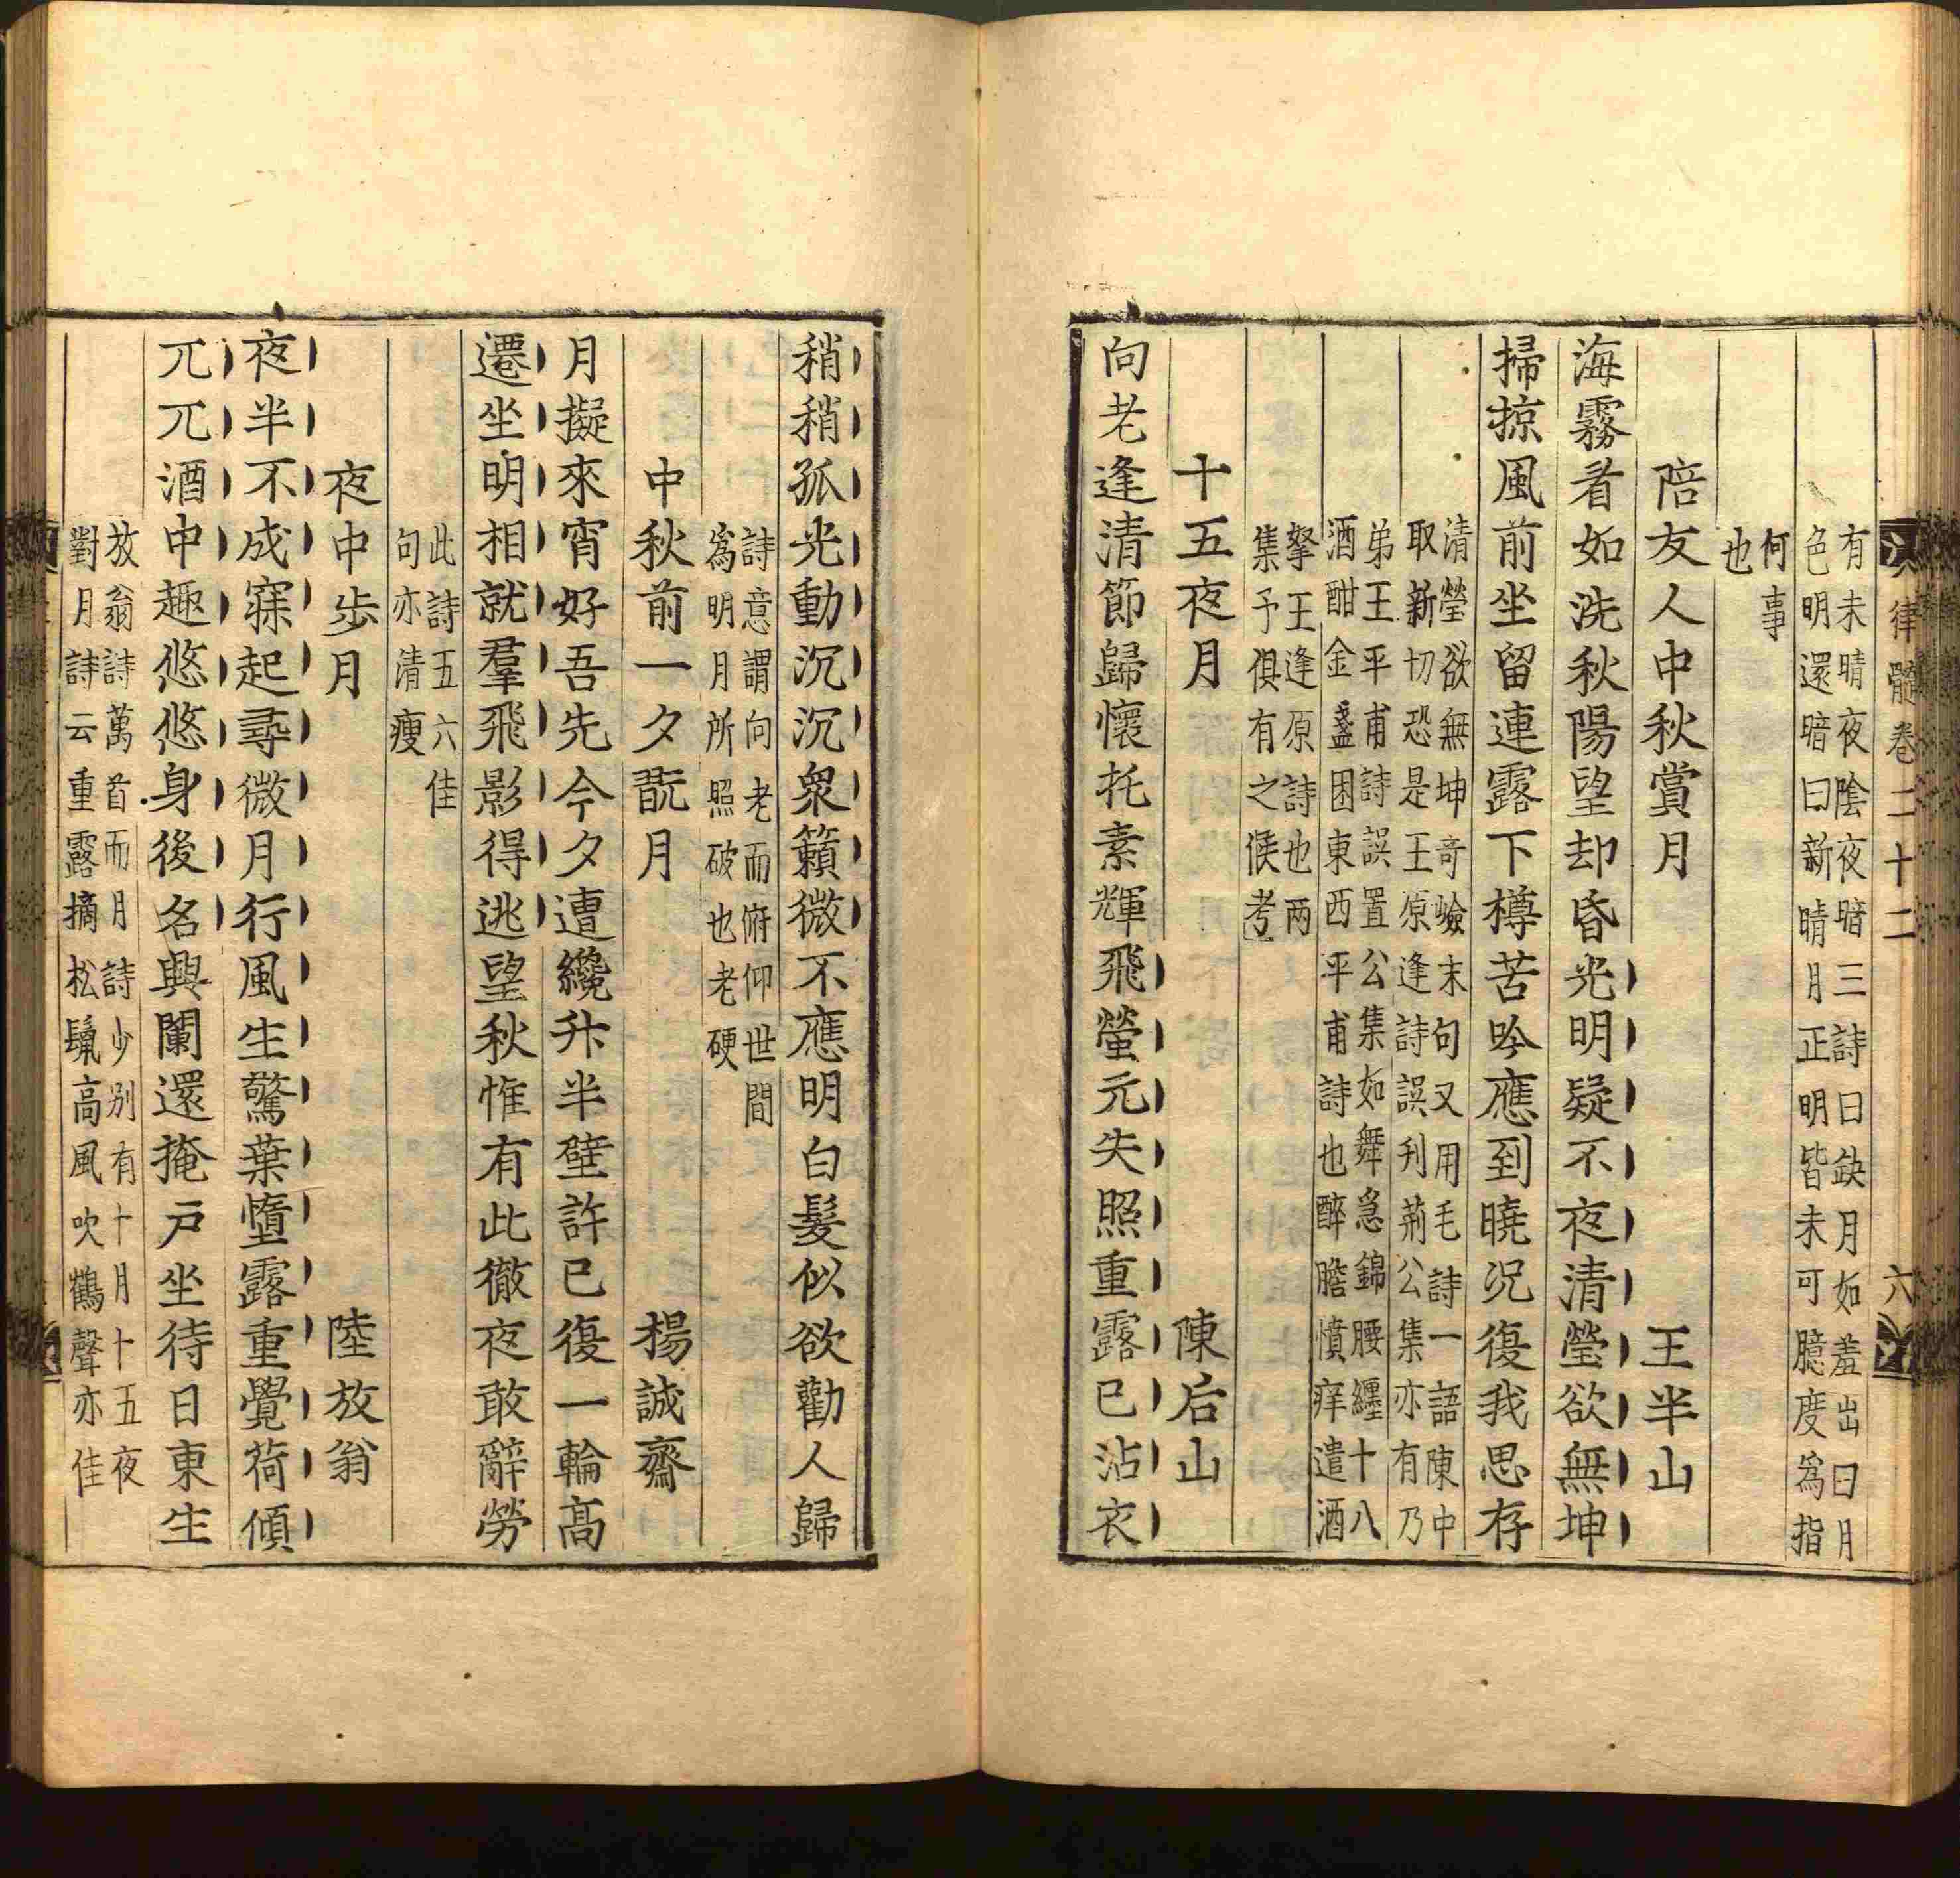 律髓卷二十二
六
有未晴夜陰夜暗三詩曰缺月如羞出曰月
色明還暗曰新晴月正明皆未可臆度爲指
何事
也
陪友人中秋賞月 王半山
海霧看如洗秋陽望却昏光明疑不夜清瑩欲無坤
掃掠風前坐留連露下樽苦吟應到曉況復我思存
清瑩欲無坤奇嶮末句又用毛詩一語陳中
取新切恐是王原逢詩誤刋荊公集亦有乃
弟王平甫詩誤置公集如舞急錦腰纏十八
酒酣金盞困東西平甫詩也醉膽憤痒遣酒
拏王逢原詩也两
集予俱有之候考
十五夜月 陳后山
向老逢清節歸懷托素輝飛螢元失照重露已沾衣
稍稍孤光動沉沉衆籟微不應明白髮似欲勸人歸
詩意謂向老而俯仰世間
爲明月所照破也老硬
中秋前一夕翫月 楊誠齋
月擬來宵好吾先今夕遭纔升半璧許已復一輪高
遷坐明相就羣飛影得逃望秋惟有此徹夜敢辭勞
此詩五六佳
句亦清瘦
夜中步月 陸放翁
夜半不成寐起尋微月行風生驚葉墮露重覺荷傾
兀兀酒中趣悠悠身後名興闌還掩戸坐待日東生
放翁詩萬首而月詩少别有十月十五夜
對月詩云重露摘松鬣高風吹鶴聲亦佳